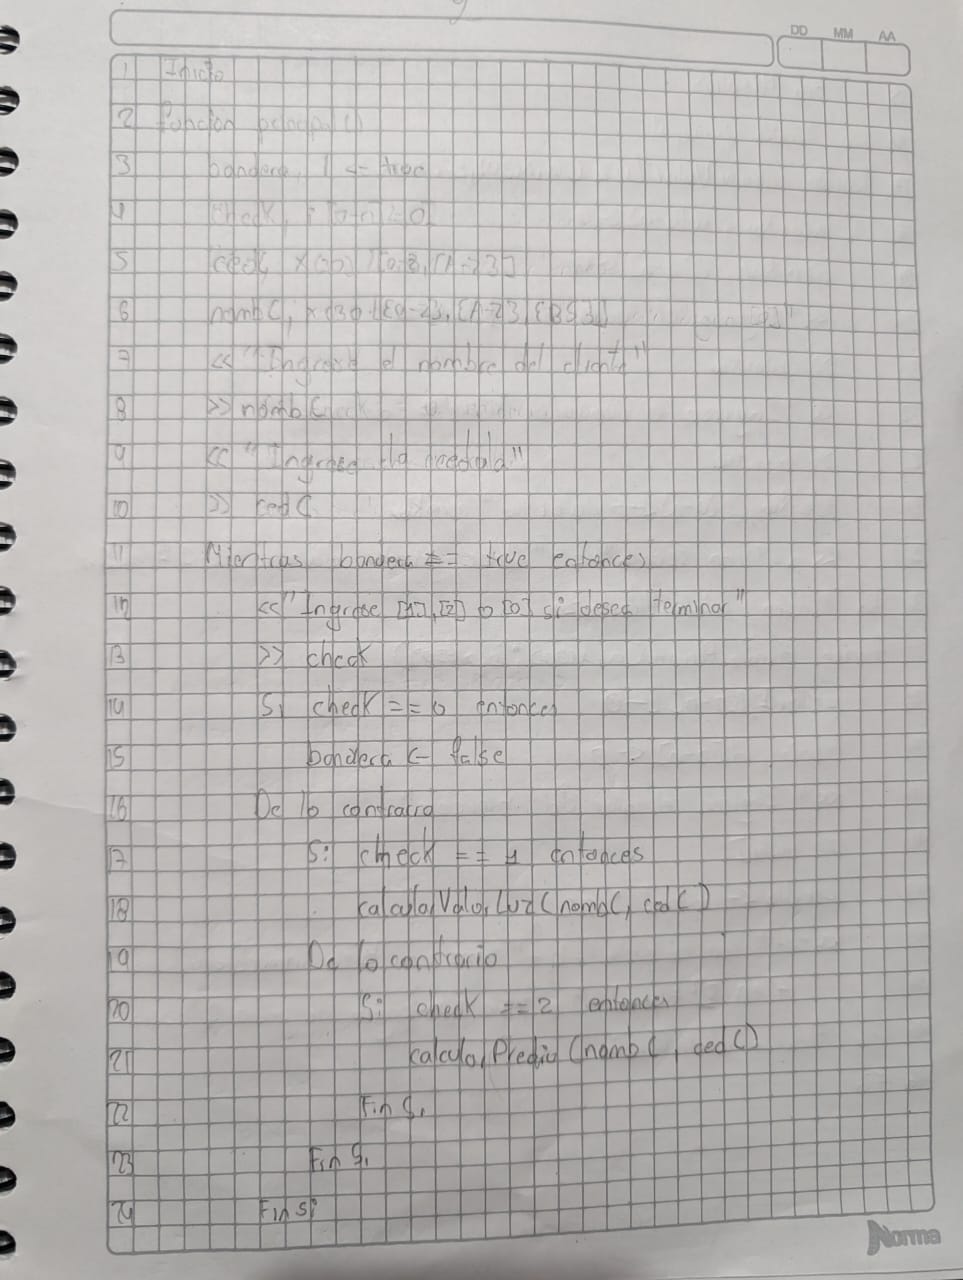 DD MM AA
1 Inicio
2 función principal()
3 bandera, 1 <- true
4 check,
5 cedC, x(
6 nombC, x(30)
7 << "Ingrese el nombre del cliente"
8 >> nombC
9 << "Ingrese la cedula"
10 >> cedC
11 Mientras bandera == true entonces
12 << "Ingrese [1], [2] o [0] si desea terminar"
13 >> check
14 Si check == 0 entonces
15 bandera <- false
16 De lo contrario
17 Si check == 1 entonces
18 calcularValorLuz(nombC, cedC)
19 De lo contrario
20 Si check == 2 entonces
21 calcularPredio(nombC, cedC)
22 Fin Si
23 Fin Si
24 Fin Si
Norma